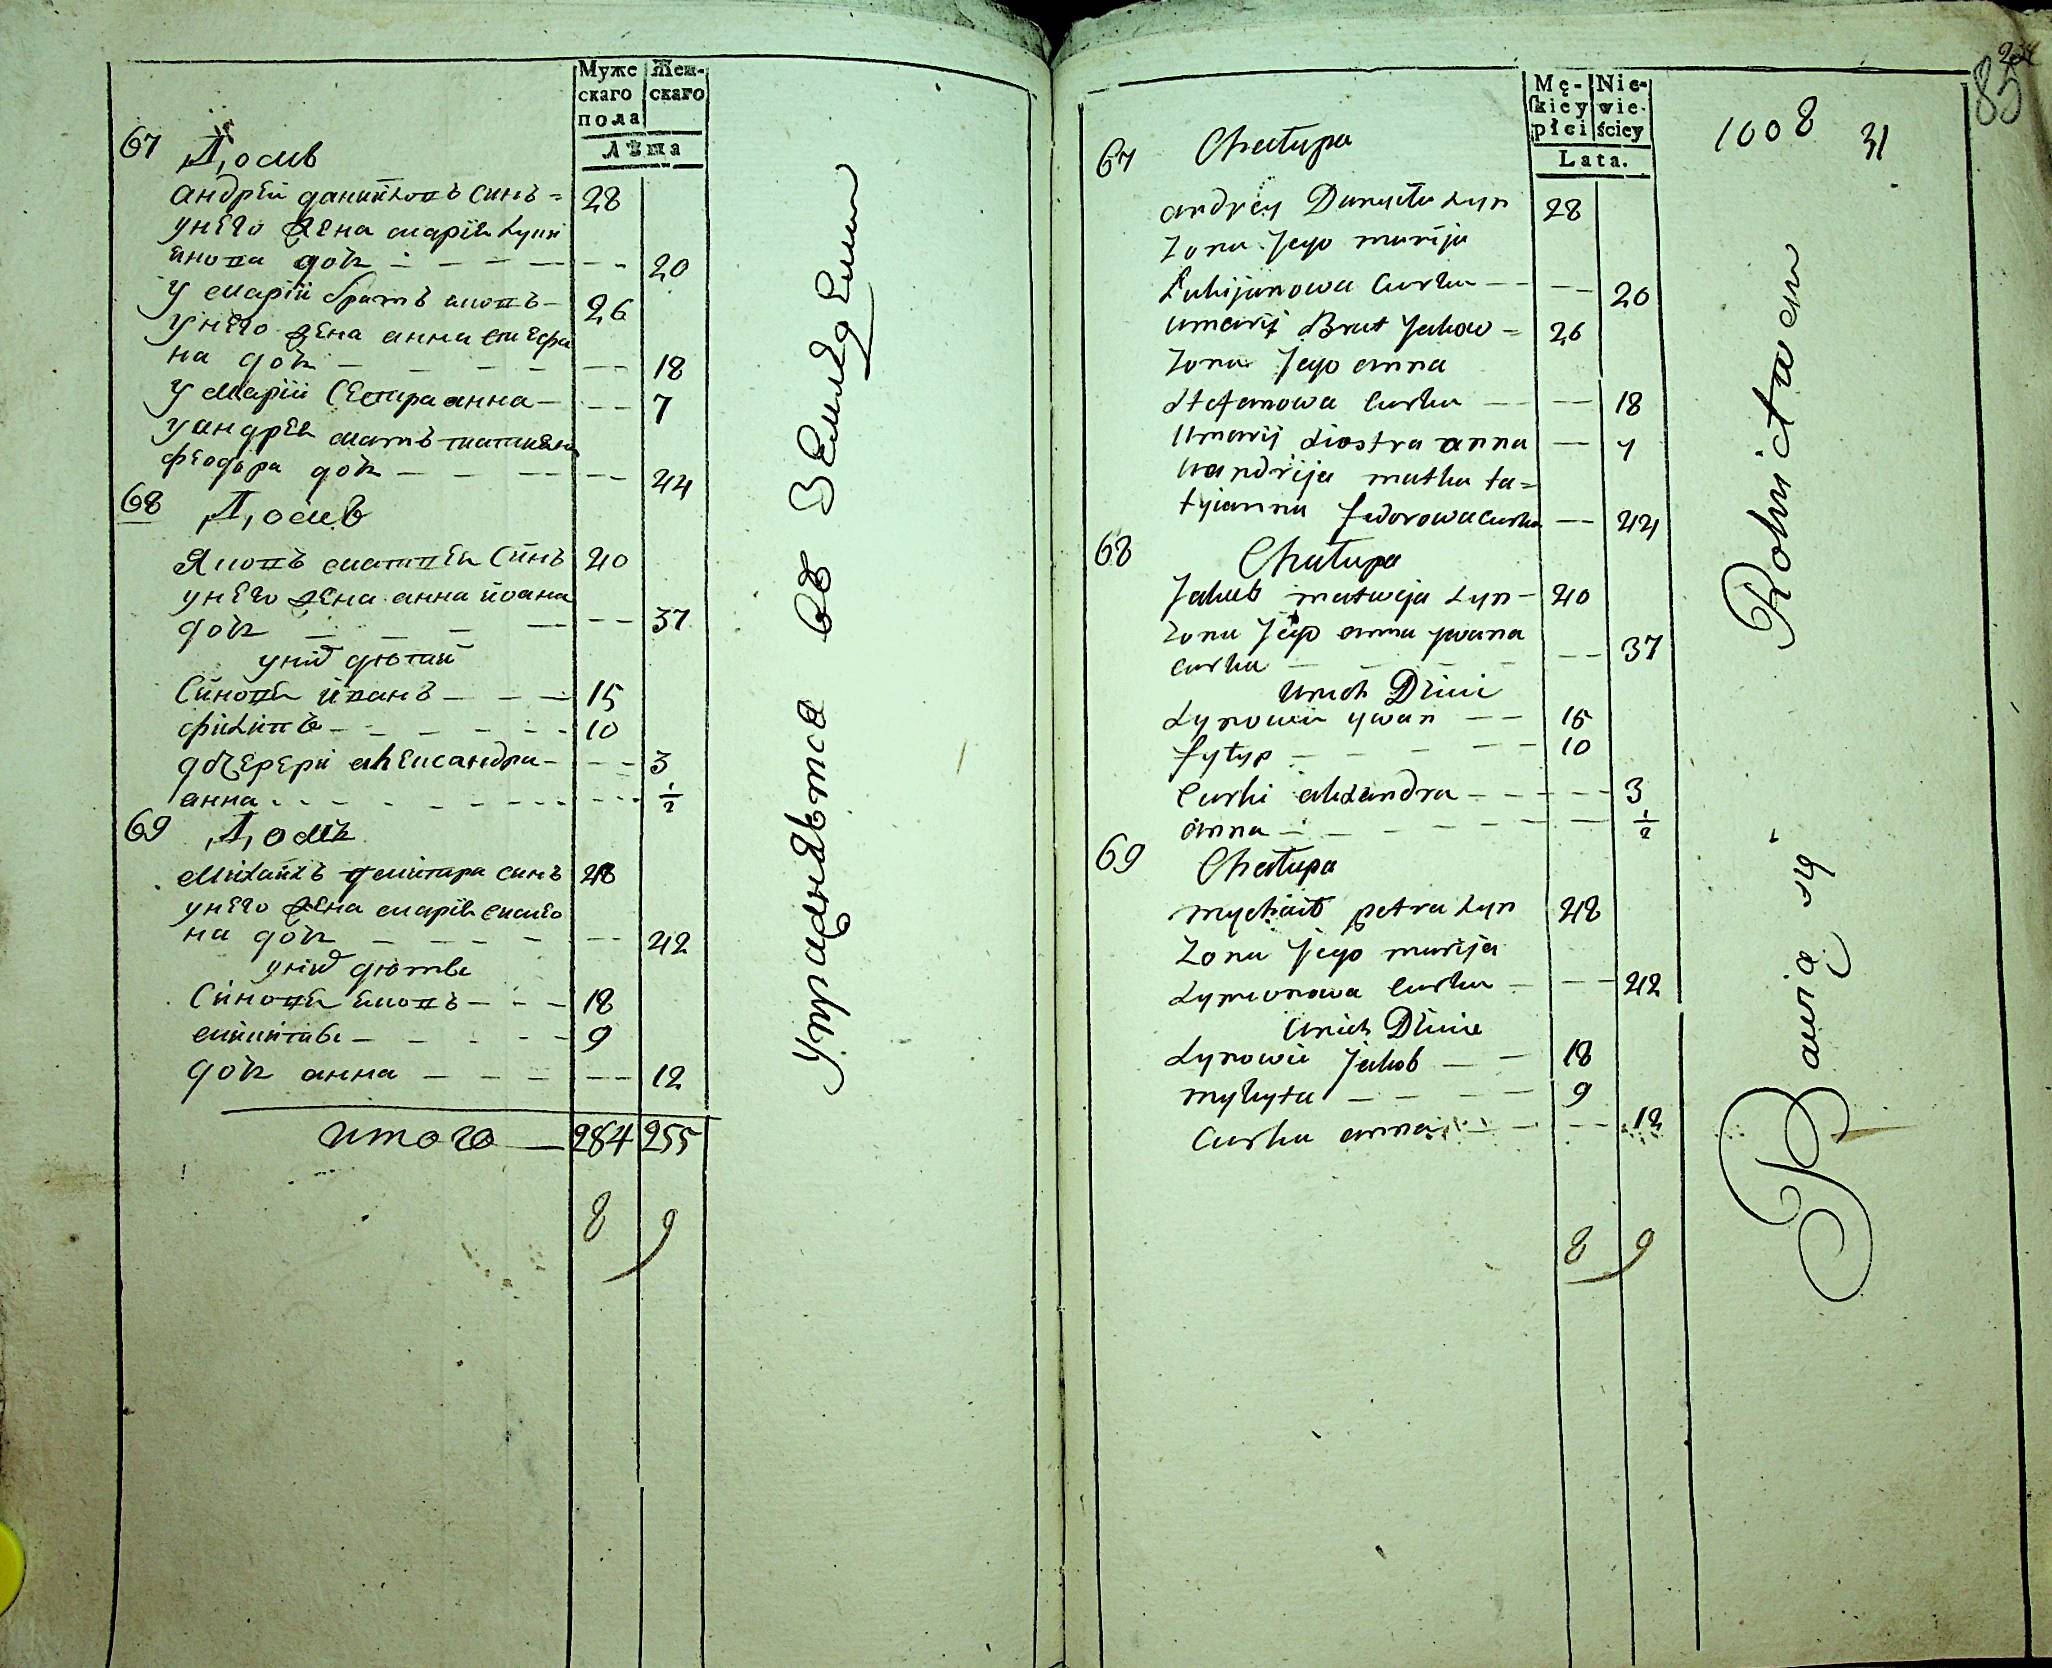 Муже
скаго
пола
Жен-
скаго
Лѣта
67 Домъ
андрей данийловъ синъ = 28
унего жена марія лукі
янова дочь - - - 20
у марій братъ яковъ - 26
унего жена анна стефа
на дочь - - - - 18
у марій сестра анна - - - 7
уандрея мать татияна
феодора дочь - - - - 44
68 Домъ
Яковъ матвея синъ 40
унего жена анна йвана
дочь - - - - - 37
уних дютий
Синовя йванъ - - - 15
филипъ - - - - - 10
дочерери александра - - - 3
анна - - - - - - 1/2
69 Домъ
михайлъ дмитра синъ 48
унего жена марія симео
на дочь - - - - 42
уних дютве
Синовя яковъ - - - 18
микита - - - - 9
дочь анна - - - - - 12
итого — 284 255
8 9
Упражняѣтса въ Земледелии
Mę-
skiey
płci
Nie-
wie-
ściey
Lata.
1008 31
85
67 Chałupa
andrey Danyiła Syn 28
Zona Jego marija
Łukijanowa Curka - - - - 20
umarij Brat Jakow = 26
Zona Jego anna
Stefanowa Curka - - - 18
Umarij Siostra anna - 7
Uandrija matka ta=
tyianna fedorowa Curka - 44
68 Chałupa
Jakub matwija Syn - 40
Zona Jego anna ywana
curka - - - - - 37
Unich Dzieci
Synowie ywan - - 15
fyłyp - - - - 10
Curki alexandra - - - - - 3
anna - - - - - - 1/2
69 Chałupa
mychaiło petra Syn 48
Zona Jego marija
Symonowa Curka - - - 42
Unich Dzieci
Synowie Jakob - - 18
mykyta - - - - 9
Curka anna - - - - 12
8 9
Bawią się Rolnictwem